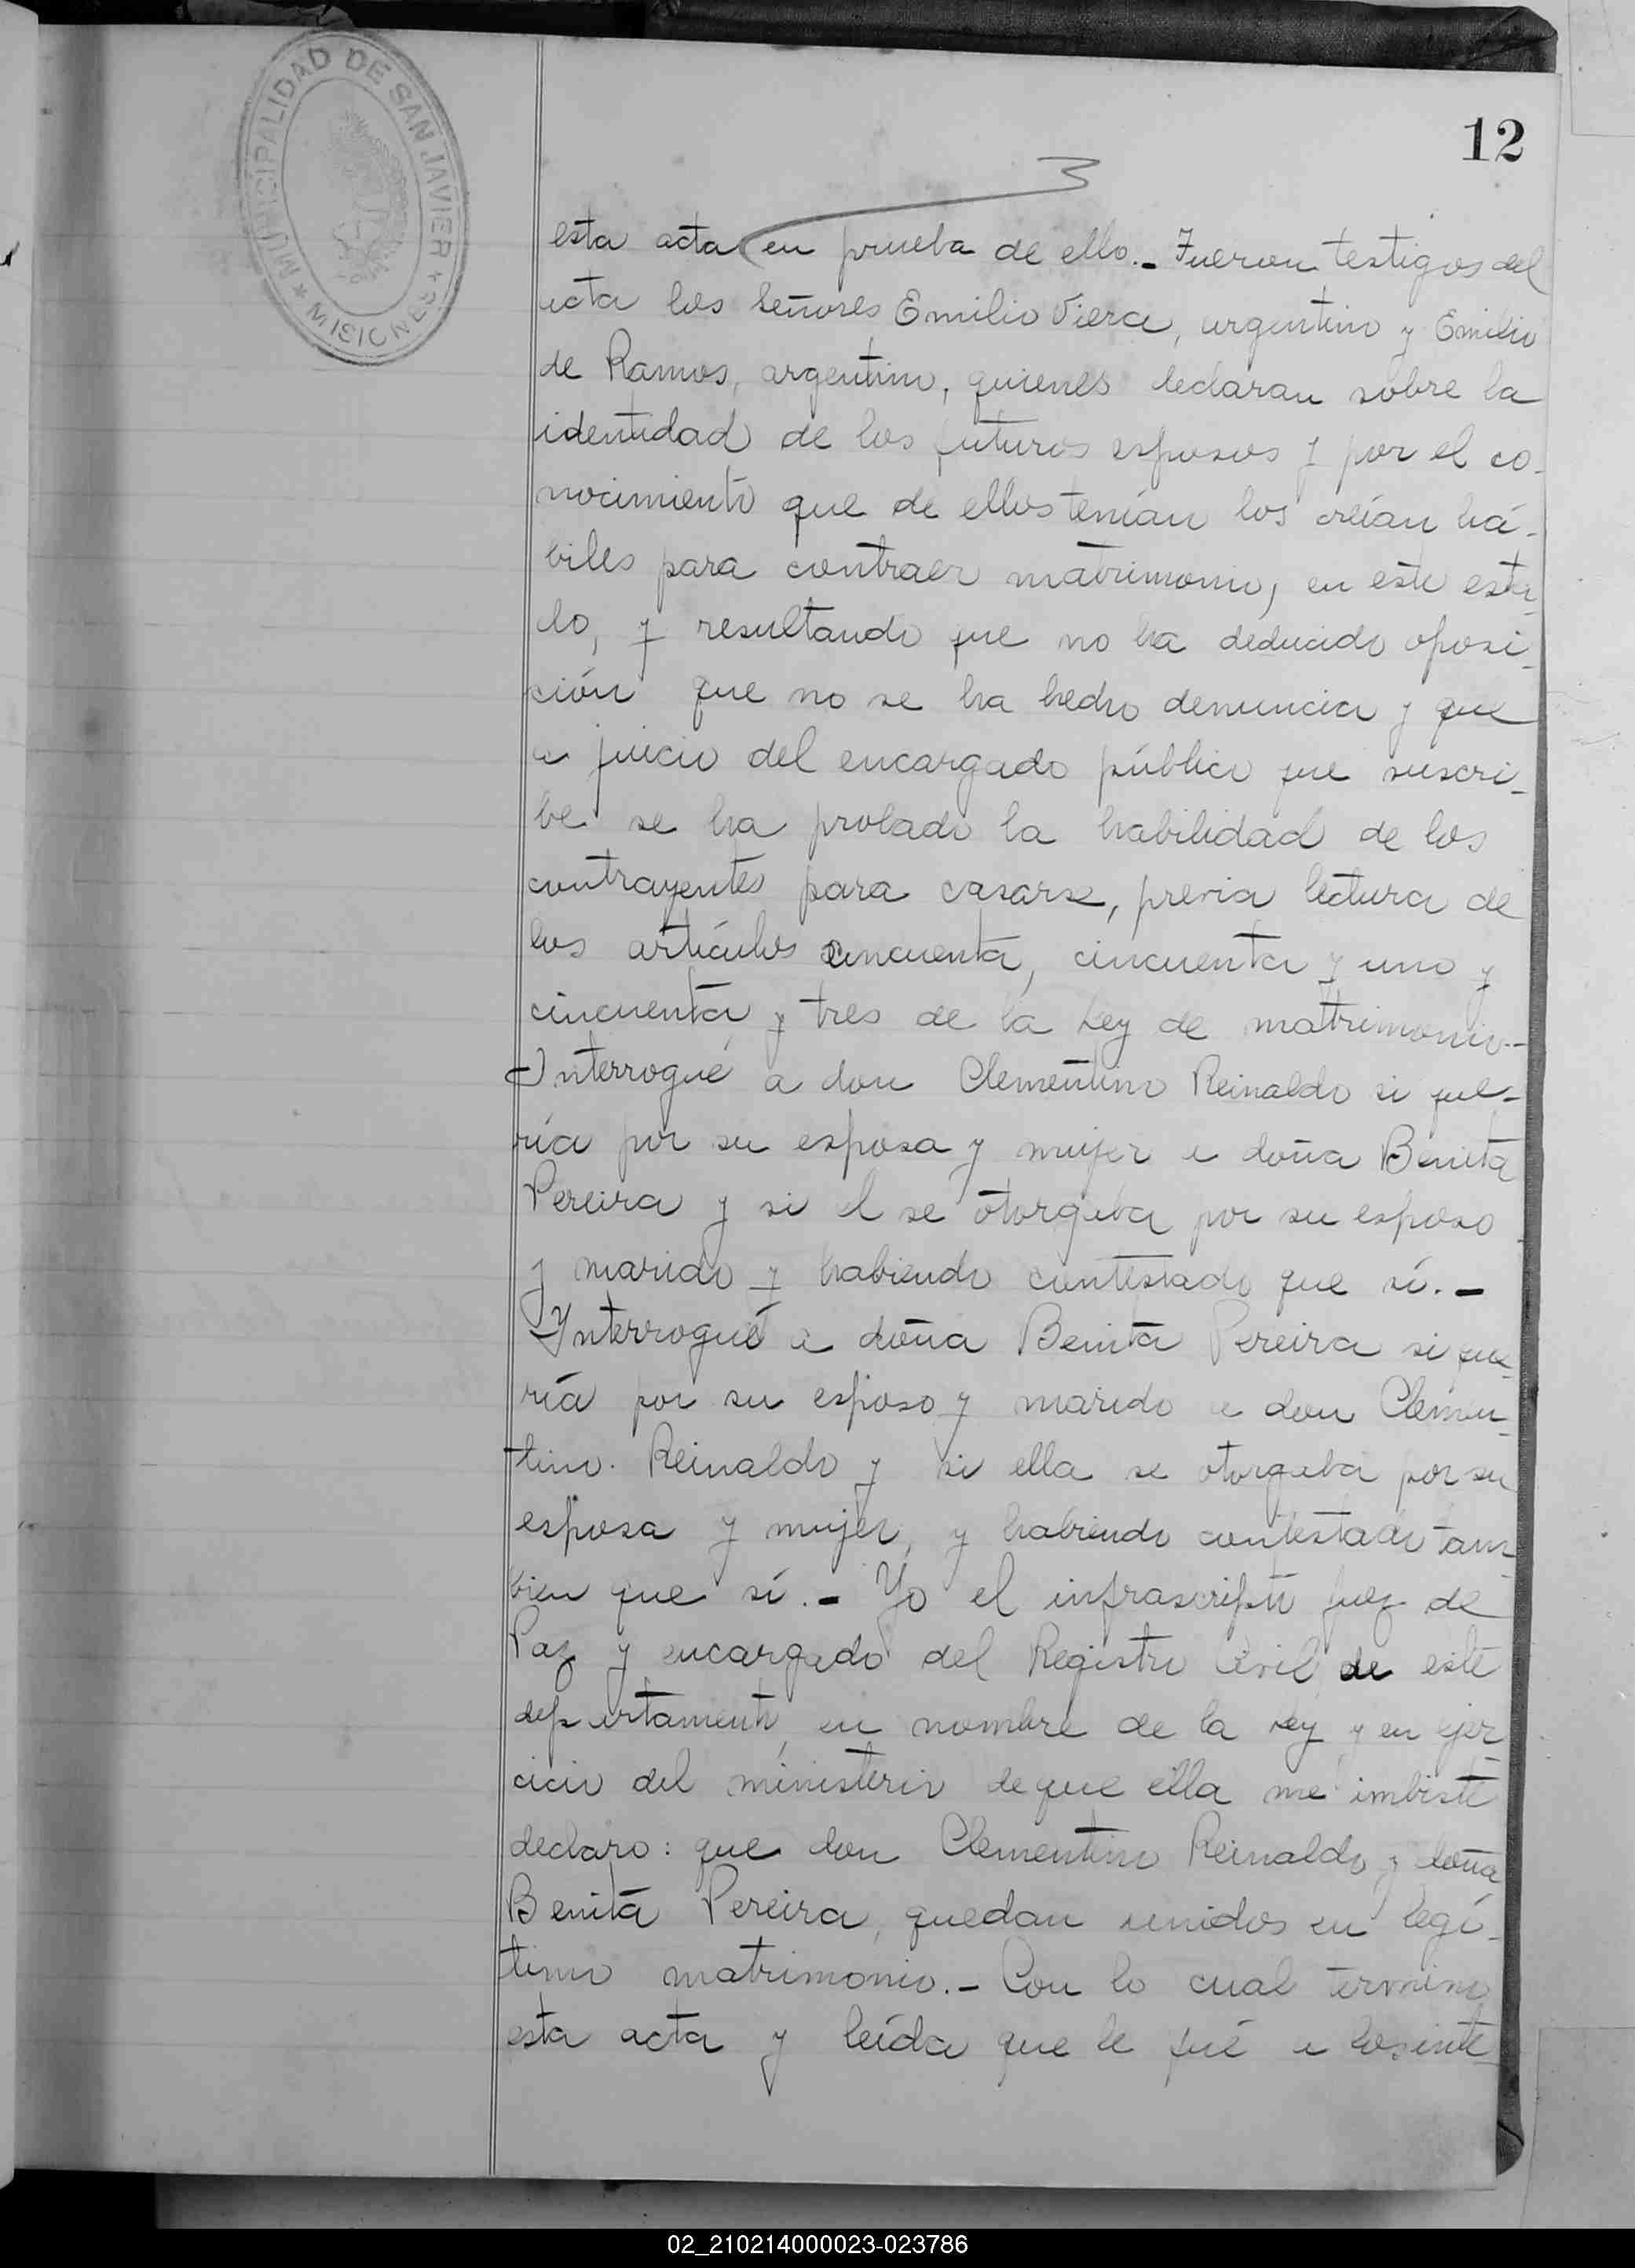 MUNICIPALIDAD DE SAN JAVIER
* MISIONES *
12
esta acta en prueba de ello.- Fueron testigos del
acta los señores Emilio Viera, argentino y Emilio
de Ramos, argentino, quienes declaran sobre la
identidad de los futuros esposos y por el co-
nocimiento que de ellos tenían los creían há-
biles para contraer matrimonio, en este esta-
do, y resultando que no ha deducido oposi-
ción que no se ha hecho denuncia y que
a juicio del encargado público que suscri-
be se ha probado la habilidad de los
contrayentes para casarse, previa lectura de
los artículos cincuenta, cincuenta y uno y
cincuenta y tres de la Ley de matrimonio.-
Interrogué a don Clementino Reinaldo si que-
ría por su esposa y mujer a doña Benita
Pereira y si el se otorgaba por su esposo
y marido y habiendo contestado que sí.-
Ynterrogué a doña Benita Pereira si que-
ría por su esposo y marido a don Clemen-
tino Reinaldo y si ella se otorgaba por su
esposa y mujer, y habiendo contestado tam-
bien que sí.- Yo el infrascripto Juez de
Paz y encargado del Registro Civil de este
departamento, en nombre de la ley y en ejer
cicio del ministerio de que ella me imbiste
declaro: que don Clementino Reinaldo y doña
Benita Pereira, quedan unidos en legí-
timo matrimonio.- Con lo cual termino
esta acta y leída que le fué a los inte-
02_210214000023-023786